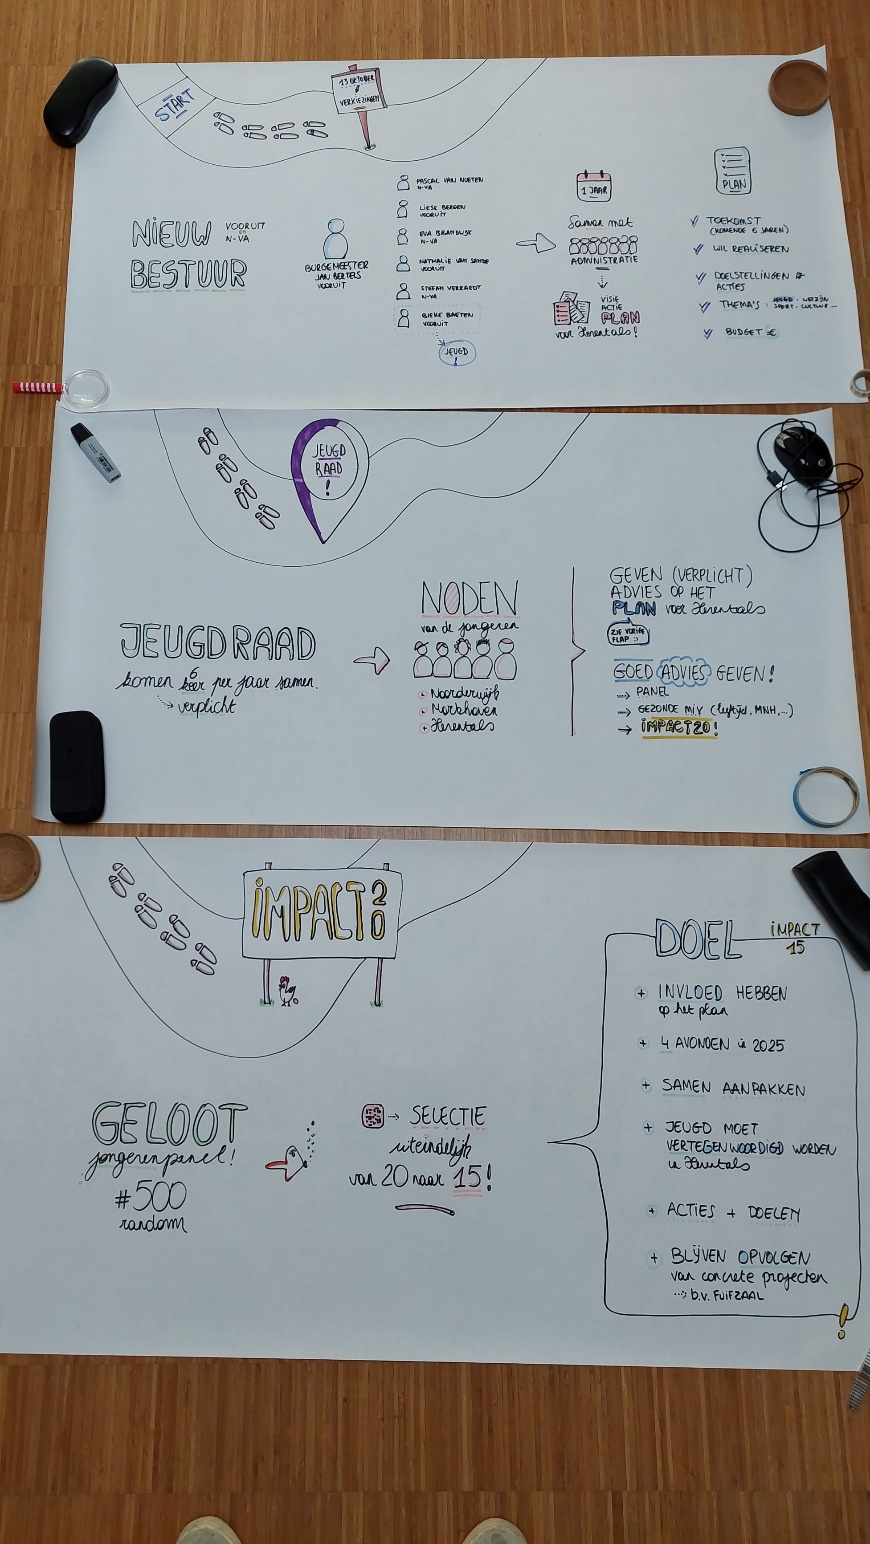 START
13 OKTOBER
VERKIEZINGEN
NIEUW
VOORUIT
EN
N-VA
BESTUUR
BURGEMEESTER
JAN BERTELS
VOORUIT
PASCAL VAN NUETEN
N-VA
LIESE BERGEN
VOORUIT
EVA BRANDWIJK
N-VA
NATHALIE VAN
VOORUIT
STEFAN VERRAEDT
N-VA
BIEKE BAETEN
VOORUIT
JEUGD
!
1 JAAR
Samen met
ADMINISTRATIE
VISIE
ACTIE
PLAN
voor Herentals!
PLAN
TOEKOMST
(KOMENDE 6 JAREN)
WIL REALISEREN
DOELSTELLINGEN &
ACTIES
THEMA'S: JEUGD - WELZIJN
SPORT - CULTUUR ...
BUDGET €
JEUGD
RAAD
!
JEUGDRAAD
komen 6 keer per jaar samen.
verplicht
NODEN
van de jongeren
+ Noorderwijk
+ Morkhoven
+ Herentals
GEVEN (VERPLICHT)
ADVIES OP HET
PLAN voor Herentals
ZIE VORIGE
FLAP :)
GOED ADVIES GEVEN!
→ PANEL
→ GEZONDE MIX (leeftijd, MNH,...)
→ IMPACT20!
IMPACT20
GELOOT
jongerenpanel!
#500
random
→ SELECTIE
uiteindelijk
van 20 naar 15!
DOEL
IMPACT
15
+ INVLOED HEBBEN
op het plan
+ 4 AVONDEN in 2025
+ SAMEN AANPAKKEN
+ JEUGD MOET
VERTEGENWOORDIGD WORDEN
in Herentals
+ ACTIES + DOELEN
+ BLIJVEN OPVOLGEN
van concrete projecten
b.v. FUIFZAAL
!